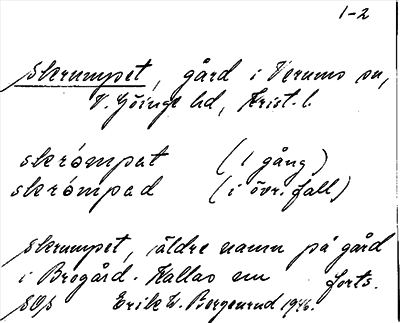 1-2
Skrumpet, gård i Verums sn,
V. Göinge hd, Krist. l.
skrómpat (1 gång)
skrómpad (i övr. fall)
Skrumpet, äldre namn på gård
i Brogård. Kallas nu forts.
SOS Erik W. Bergenrud 1946.